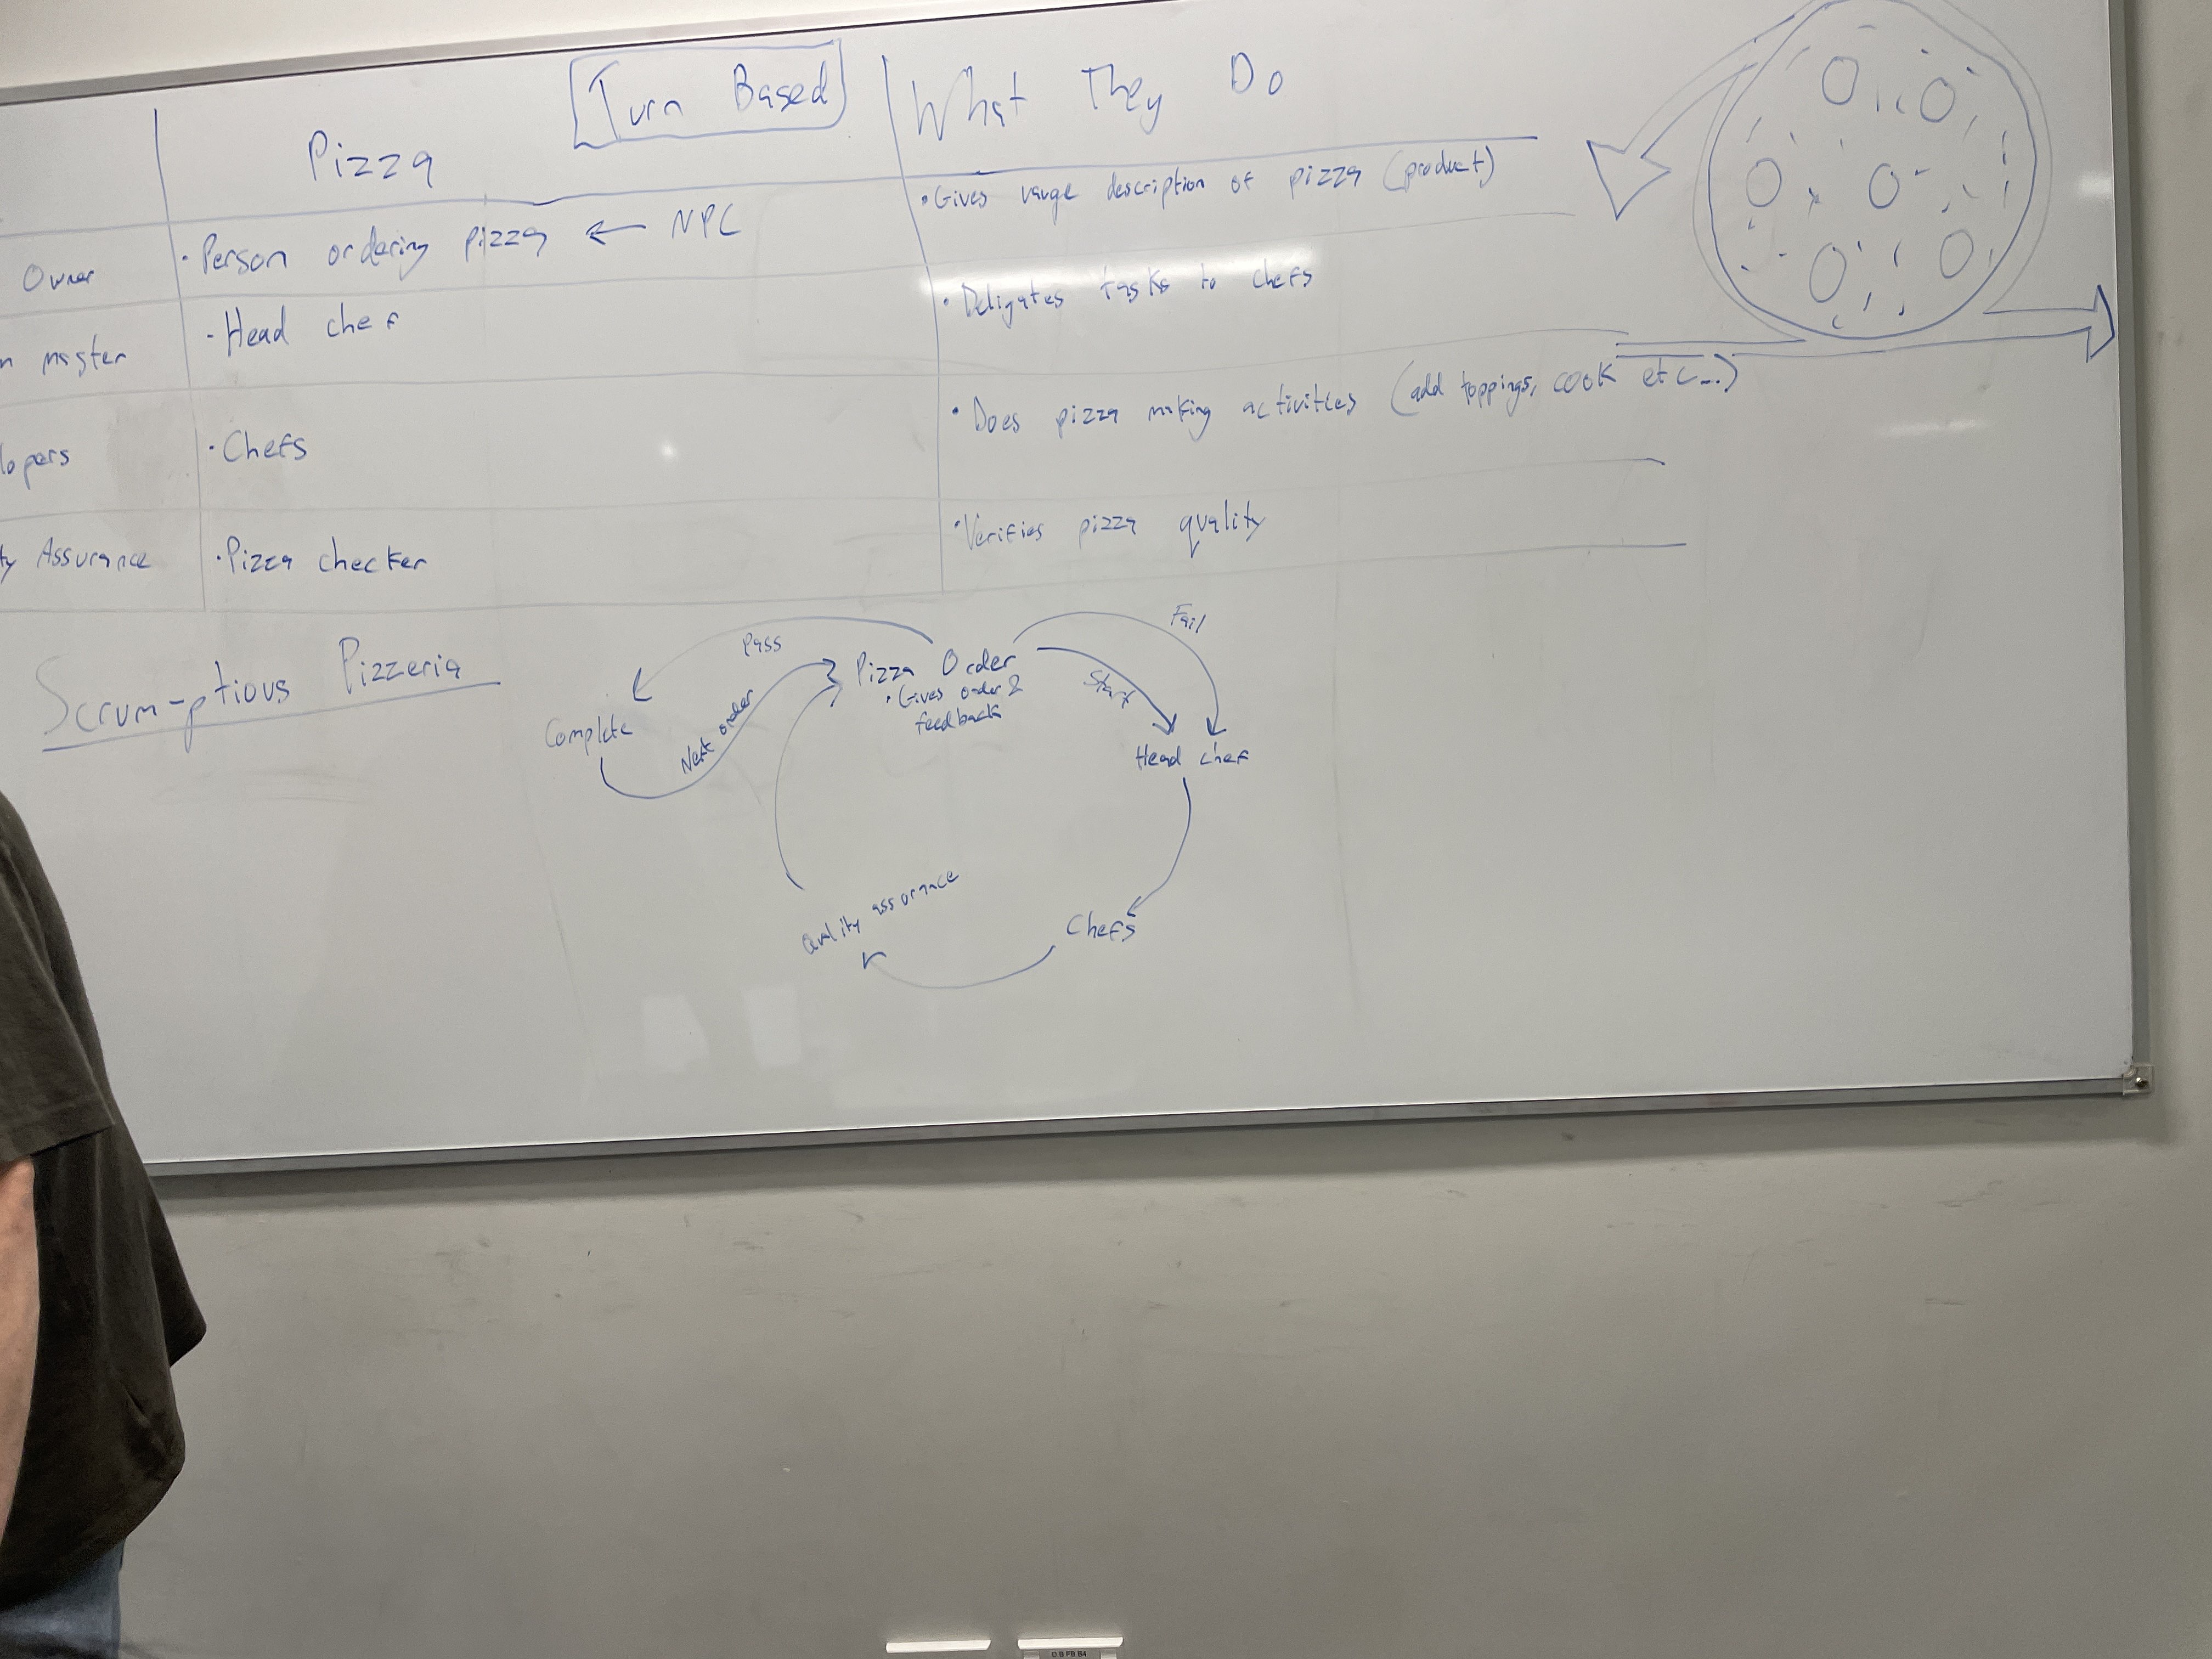 Turn Based
Pizza
What They Do
Owner
• Person ordering pizza ← NPC
• Gives vauge description of pizza (product)
n master
- Head chef
• Deligates tasks to chefs
lopers
• Chefs
• Does pizza making activities (add toppings, cook etc...)
ty Assurance
• Pizza checker
• Verifies pizza quality
Scrum-ptious Pizzeria
Pass
Fail
Pizza Order
• Gives order &
feedback
Start
Complete
Next order
Head chef
Quality assurance
Chefs
D.B FB B4